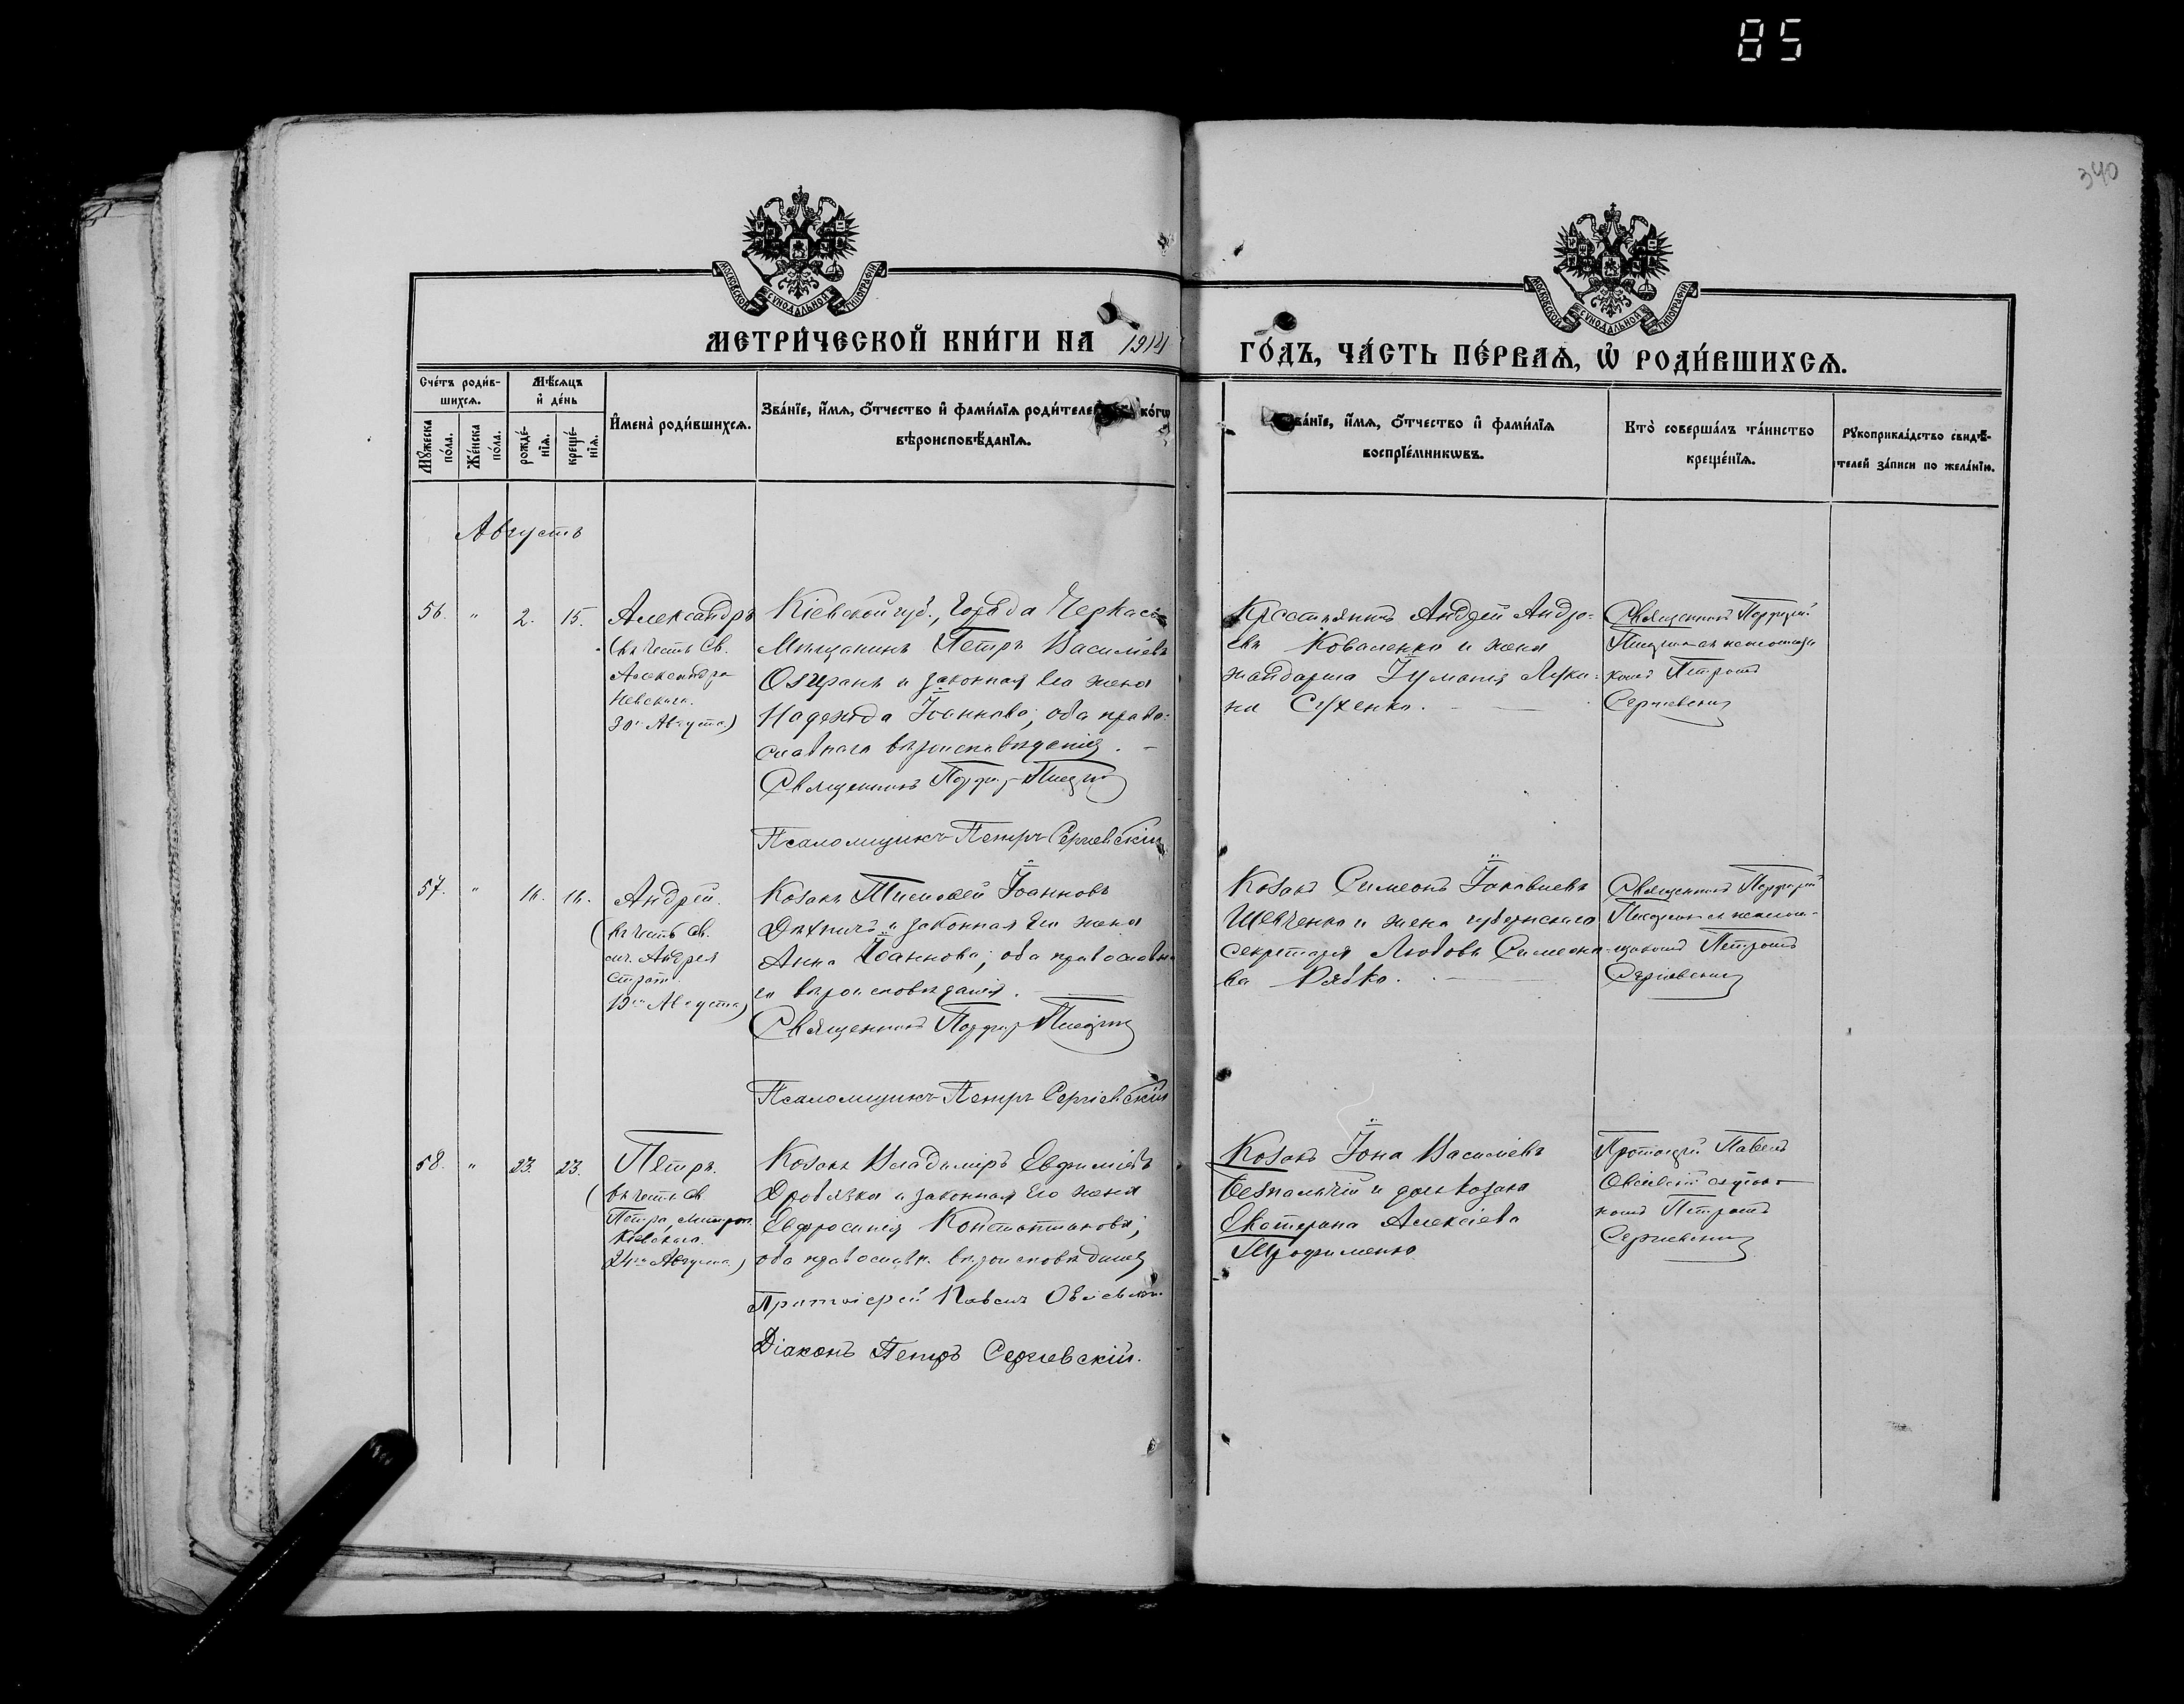 85
340
МОСКОВСКОЙ СѴНОДАЛЬНОЙ ТИПОГРАФІИ
МОСКОВСКОЙ СѴНОДАЛЬНОЙ ТИПОГРАФІИ
МЕТРИ́ЧЕСКОЙ КНИ́ГИ НА 1914
ГО́ДЪ, ЧА́СТЬ ПЕ́РВАѦ, Ѡ҆ РОДИ́ВШИХСѦ.
Сче́тъ роди́в-
шихсѧ.
Мѣ́сѧцъ
и҆ де́нь
Мꙋ́жеска
по́ла.
Же́нска
по́ла.
рожде́-
нїѧ.
креще́-
нїѧ.
И҆мена̀ роди́вшихсѧ.
Зва́нїе, и҆́мѧ, ѻ҆́тчество и҆ фами́лїѧ роди́теле ко́гѡ
вѣроисповѣ́данїѧ.
ва́нїе, и҆́мѧ, ѻ҆́тчество и҆ фами́лїѧ
воспрїе́мникѡвъ.
Кто̀ соверша́лъ та́инство
креще́нїѧ.
Рꙋкоприкла́дство свидѣ́-
телей за́писи по жела́нїю.
Августъ
56. " 2. 15.
Александръ
(въ честь Св.
Александра
Невскаго.
30го Августа)
Кіевской губ., города Черкасъ
Мѣщанинъ Петръ Василіевъ
и законная его жена
Надежда Іоаннова; оба право-
славнаго вѣроисповѣданія.
Священникъ
Псаломщикъ Петръ Сергіевскій
Крестьянинъ Андрей Андре-
евъ Коваленко и жена
жандарма Луки-
на Сухенко.
Священникъ Порфирій
Петромъ
Сергіевскимъ
57. " 16. 16.
Андрей.
(въ честь св.
муч. Андрея
Страт.
19го Августа)
Козакъ Тимофей Іоанновъ
и законная его жена
Анна Іоаннова; оба православна-
го вѣроисповѣданія.
Священникъ
Псаломщикъ Петръ Сергіевскій
Козакъ Симеонъ Іаковлевъ
Шевченко и жена губернскаго
секретаря Любовь Симеоно-
ва Рябко.
Священникъ Порфирій
щикомъ Петромъ
Сергіевскимъ
58. " 23. 23.
Петръ.
(въ честь св
Петра, митроп.
Кіевскаго.
24го Августа)
Козакъ Владиміръ Евфиміевъ
Дробязка и законная его жена
Евфросинія Константинова;
оба православн. вѣроисповѣданія
Протоіерей Павелъ
Діаконъ Петръ Сергіевскій.
Козакъ Іона Василіевъ
Безпалчій и дочь козака
Екатерина Алексіева
Трофименко
Протоіерей Павелъ
Петромъ
Сергіевскимъ